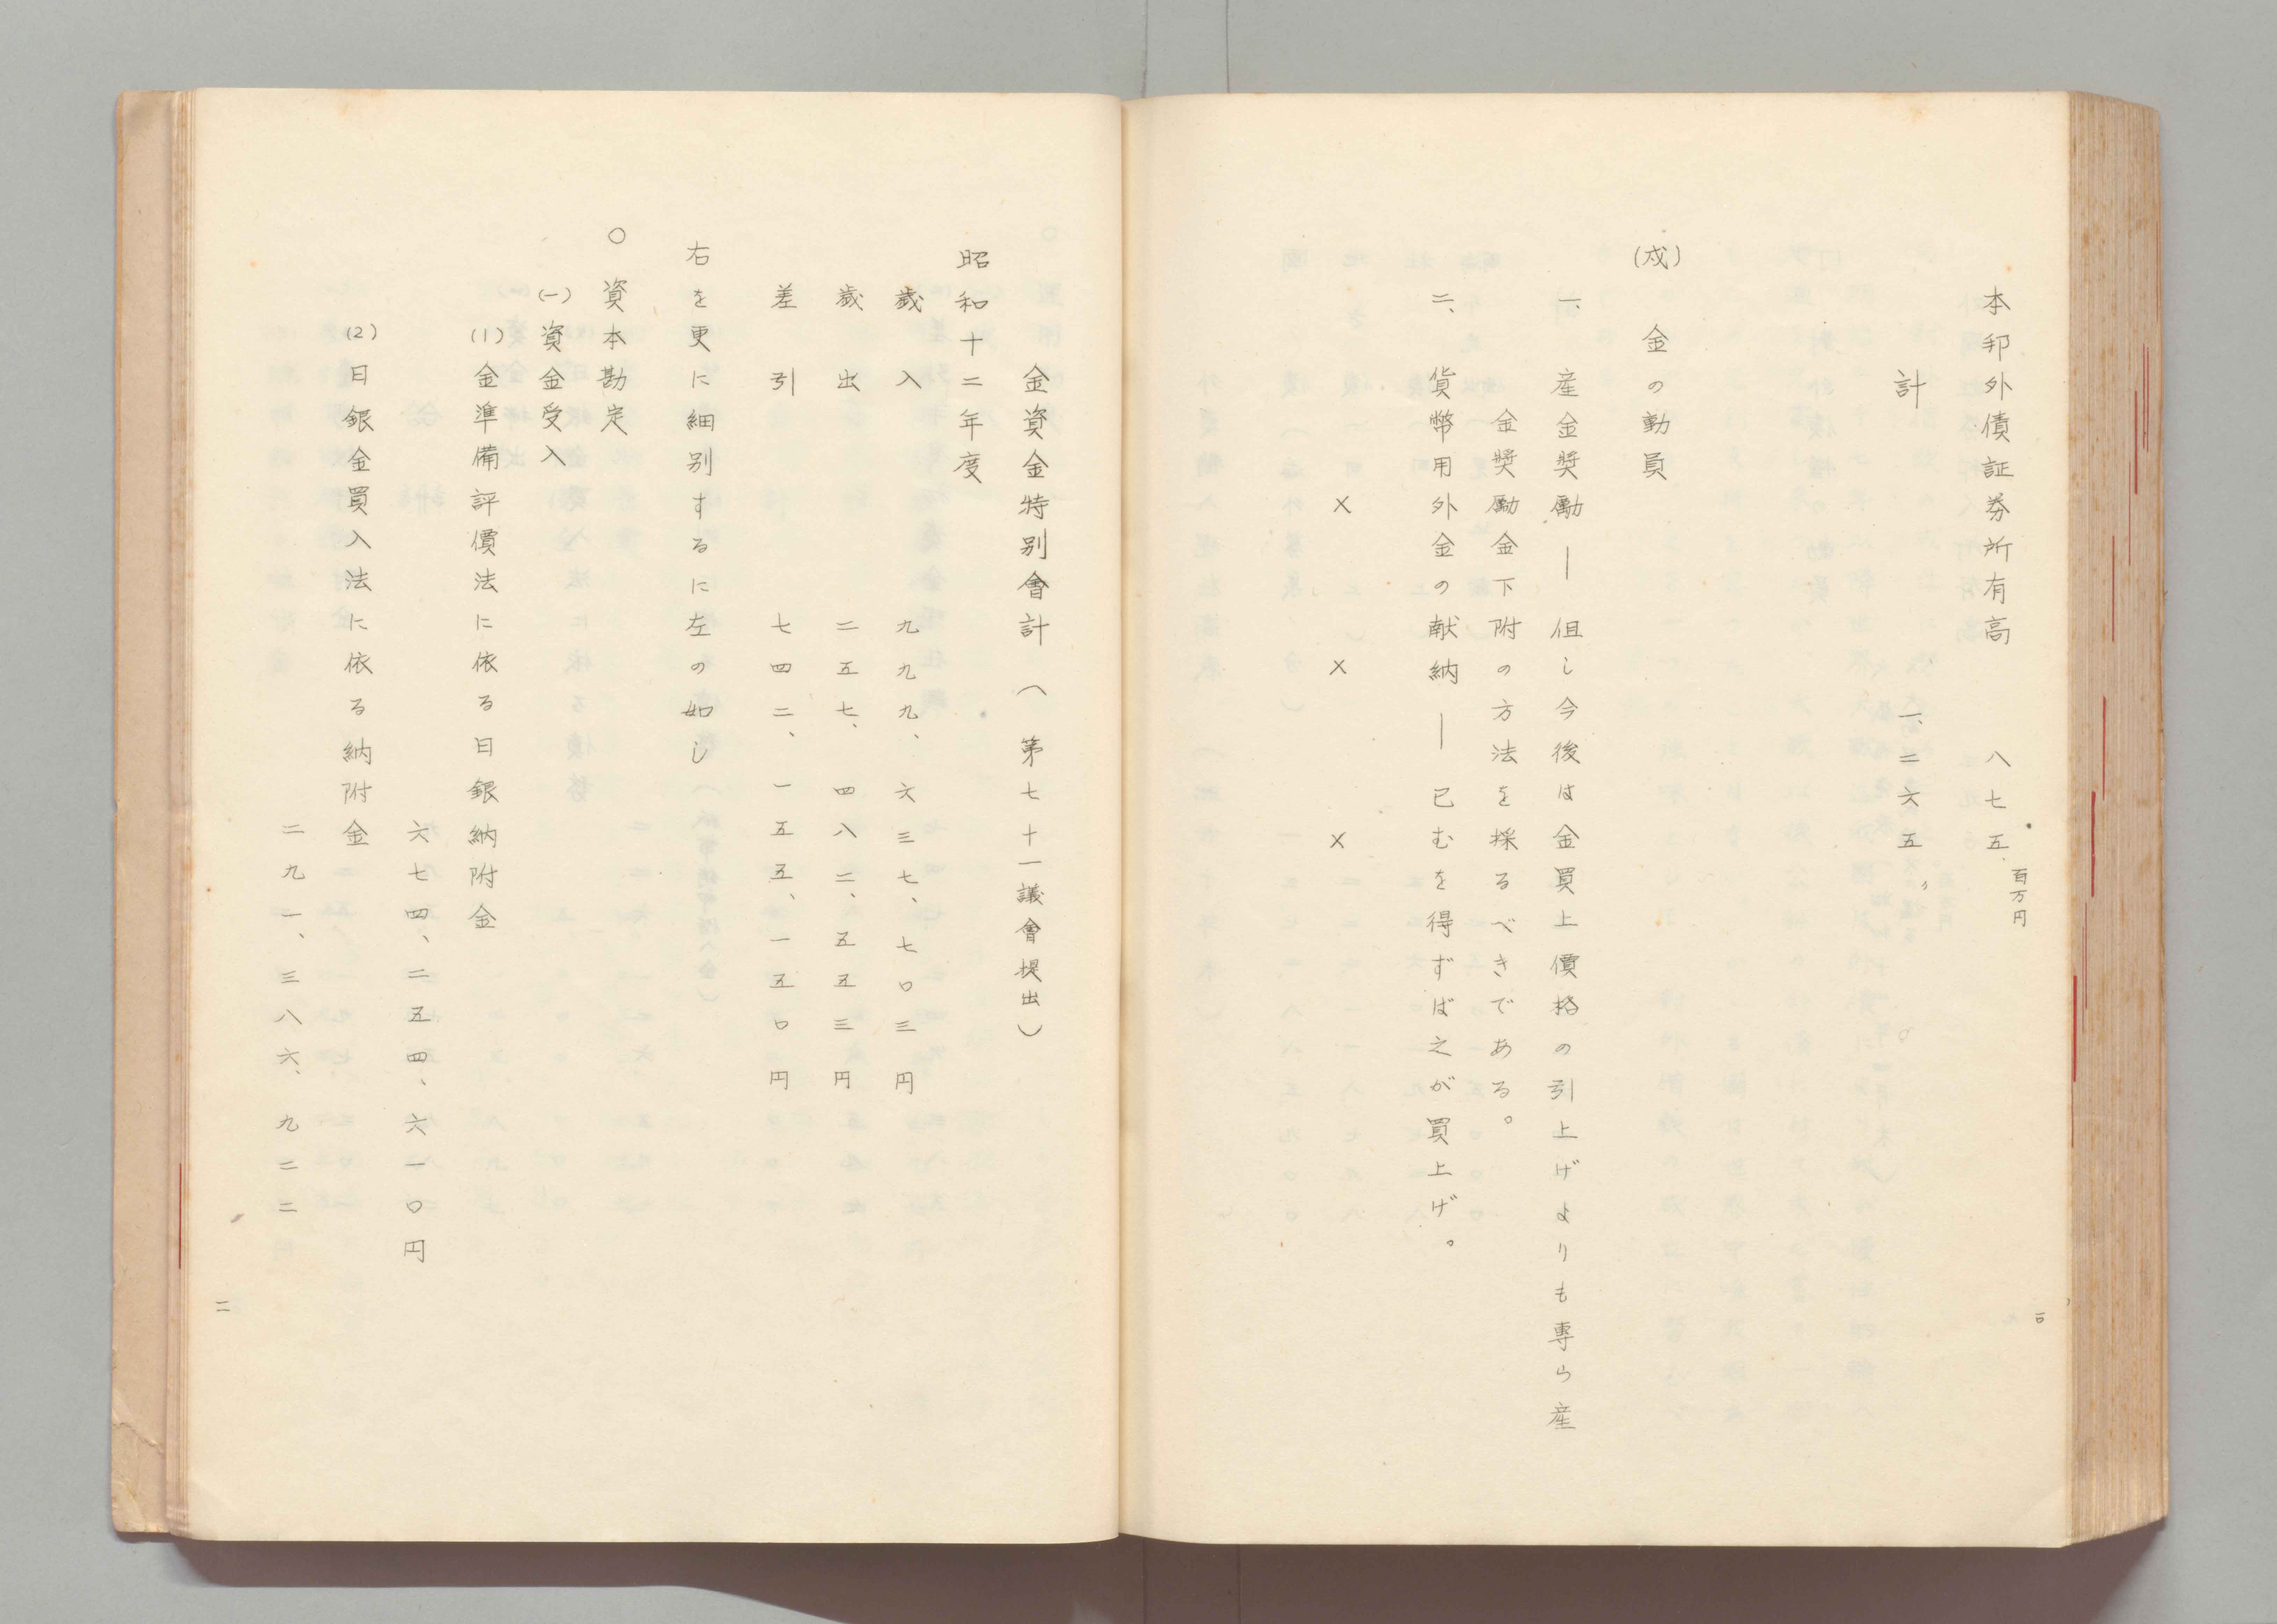 本邦外債証券所有高　八七五百万円
計　一、二六五〃
(戍)　金の動員
一、産金奨励―但し今後は金買上價格の引上げよりも専ら産
金奨励金下附の方法を採るべきである。
二、貨幣用外金の献納―已むを得ずば之が買上げ。
×　×　×
二〇
金資金特別會計（第七十一議會提出）
昭和十二年度
歳入　九九九、六三七、七〇三円
歳出　二五七、四八二、五五三円
差引　七四二、一五五、一五〇円
右を更に細別するに左の如し
○資本勘定
(一)資金受入
(1)金準備評價法に依る日銀納附金
六七四、二五四、六一〇円
(2)日銀金買入法に依る納附金
二九一、三八六、九二二